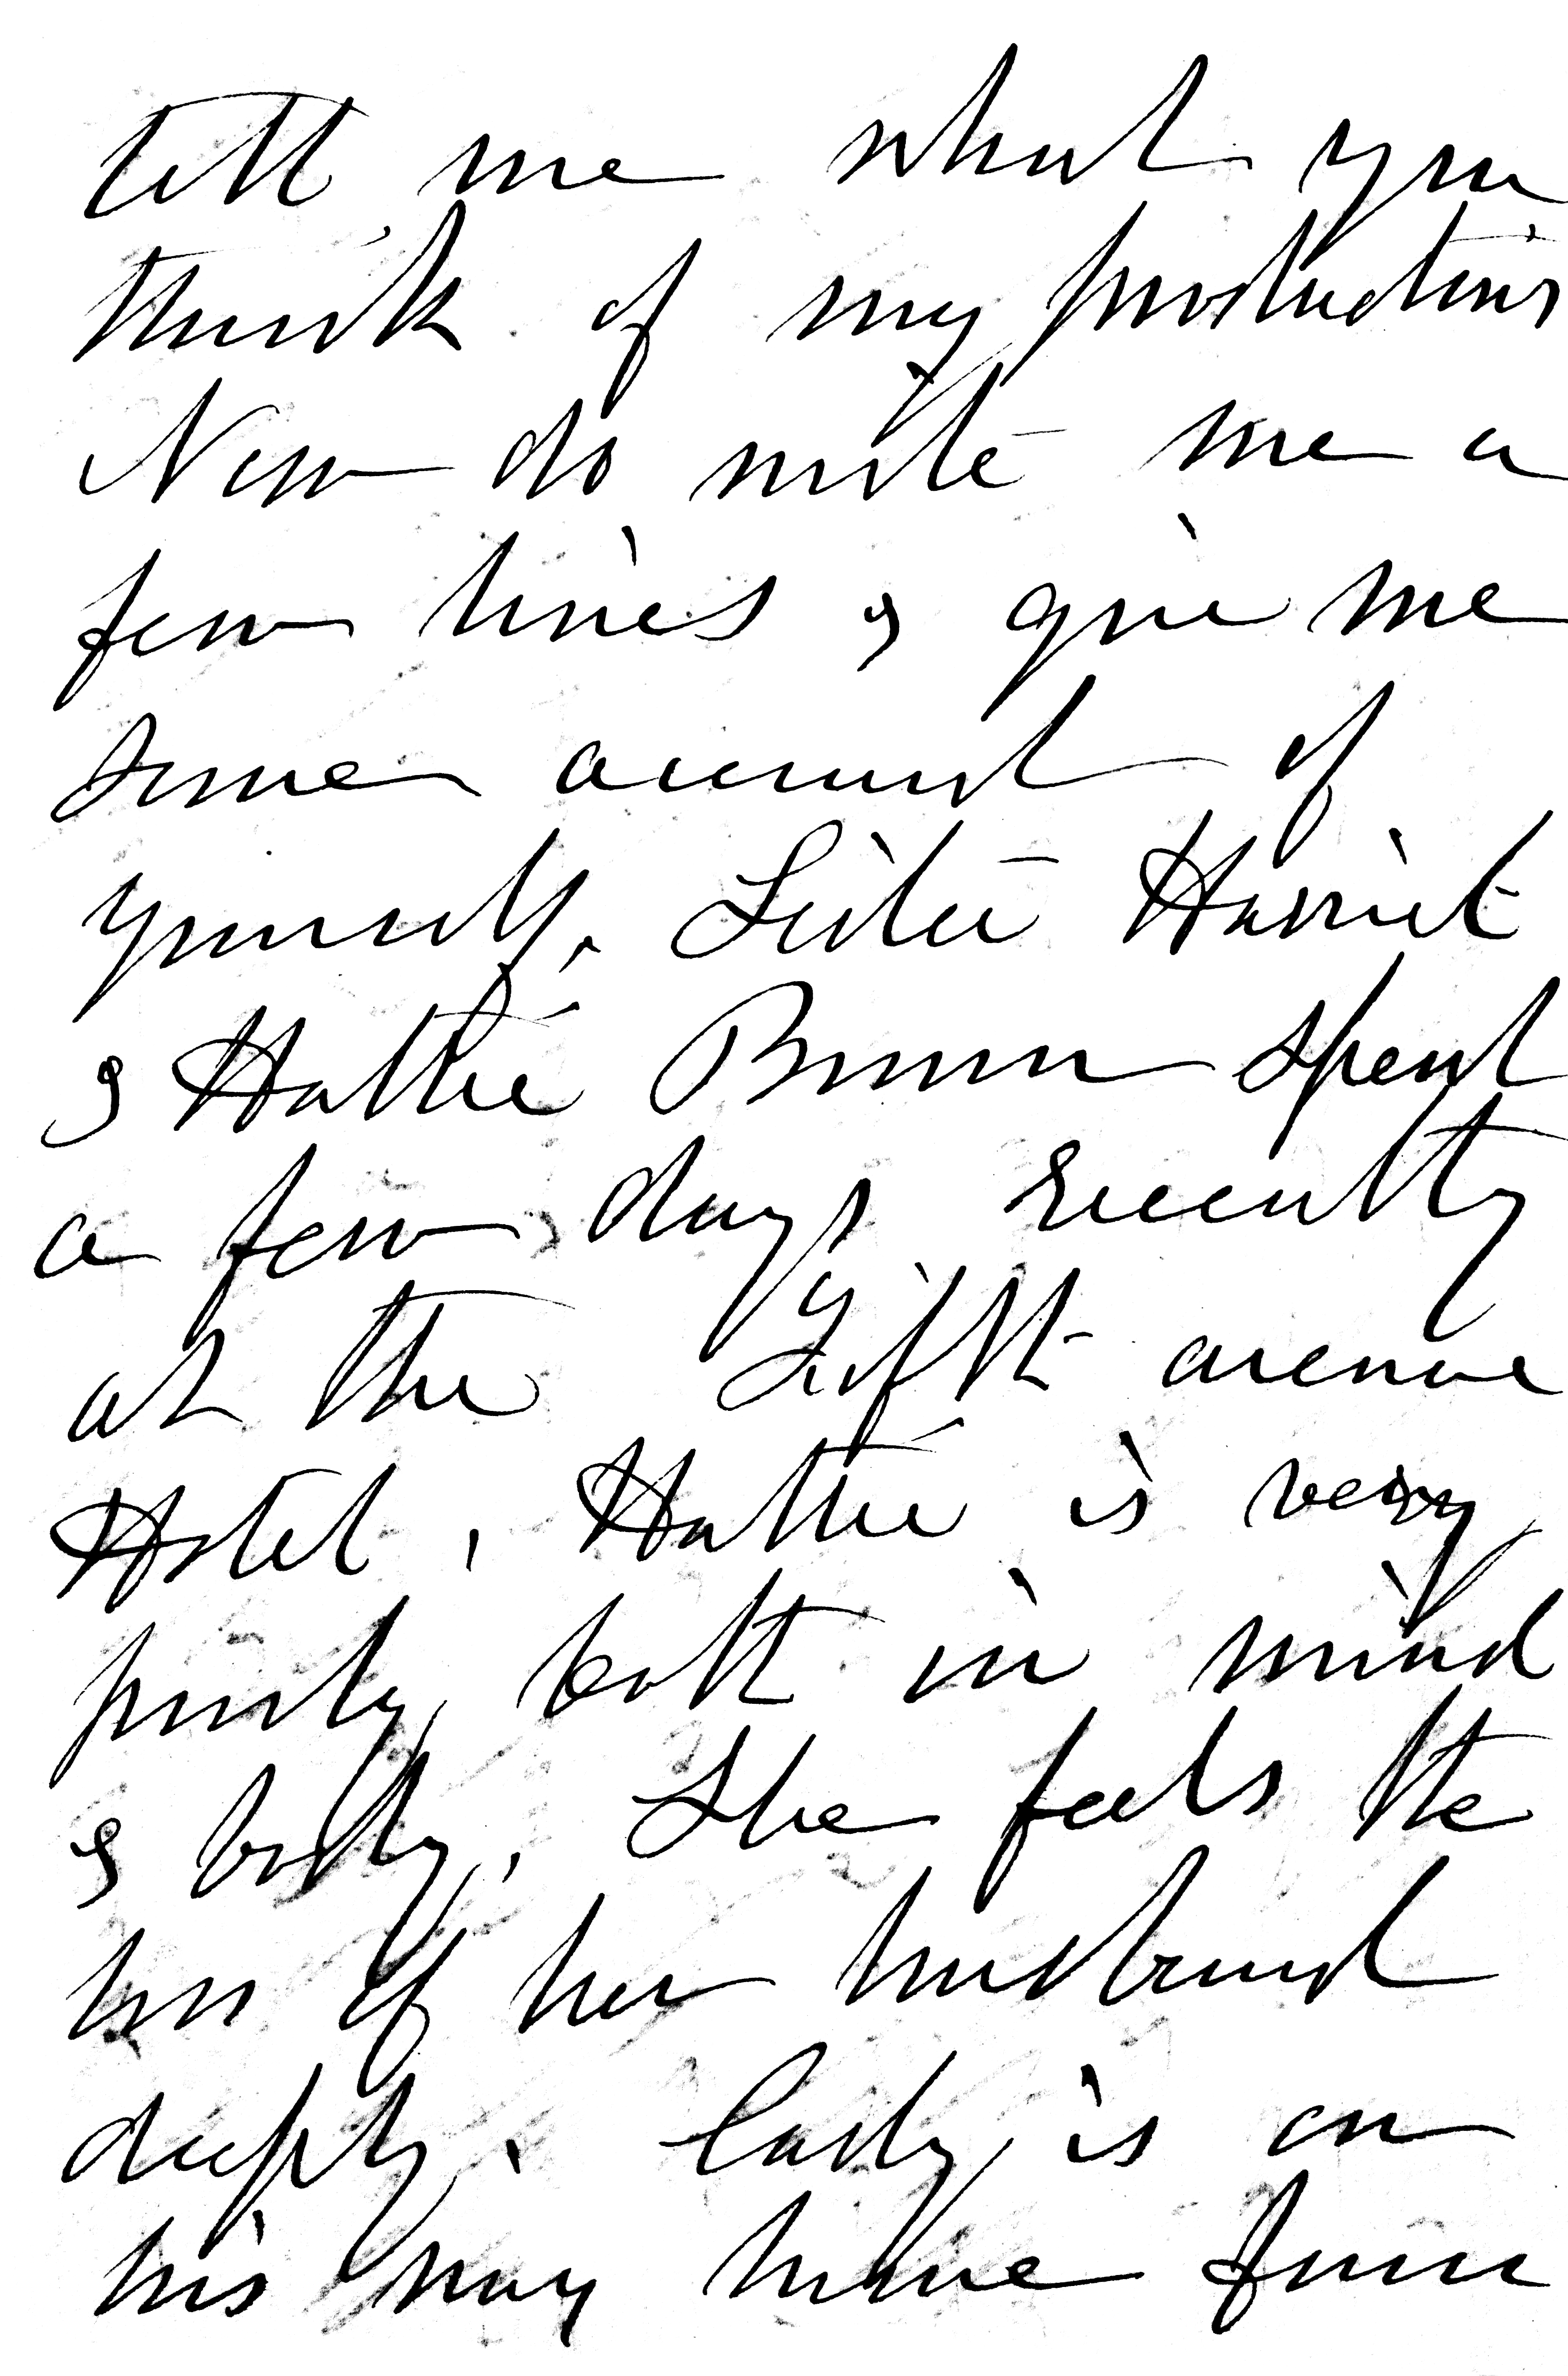 tell me what you
think of my productions
Now do write me a
few lines & give me
some account of
yourself. Sister Harriet
& Hattie Brown spent
a few days recently
at the Fifth avenue
Hotel. Hattie is very
poorly, both in mind
& body. She feels the
loss of her husband
deeply. is on
his way home from